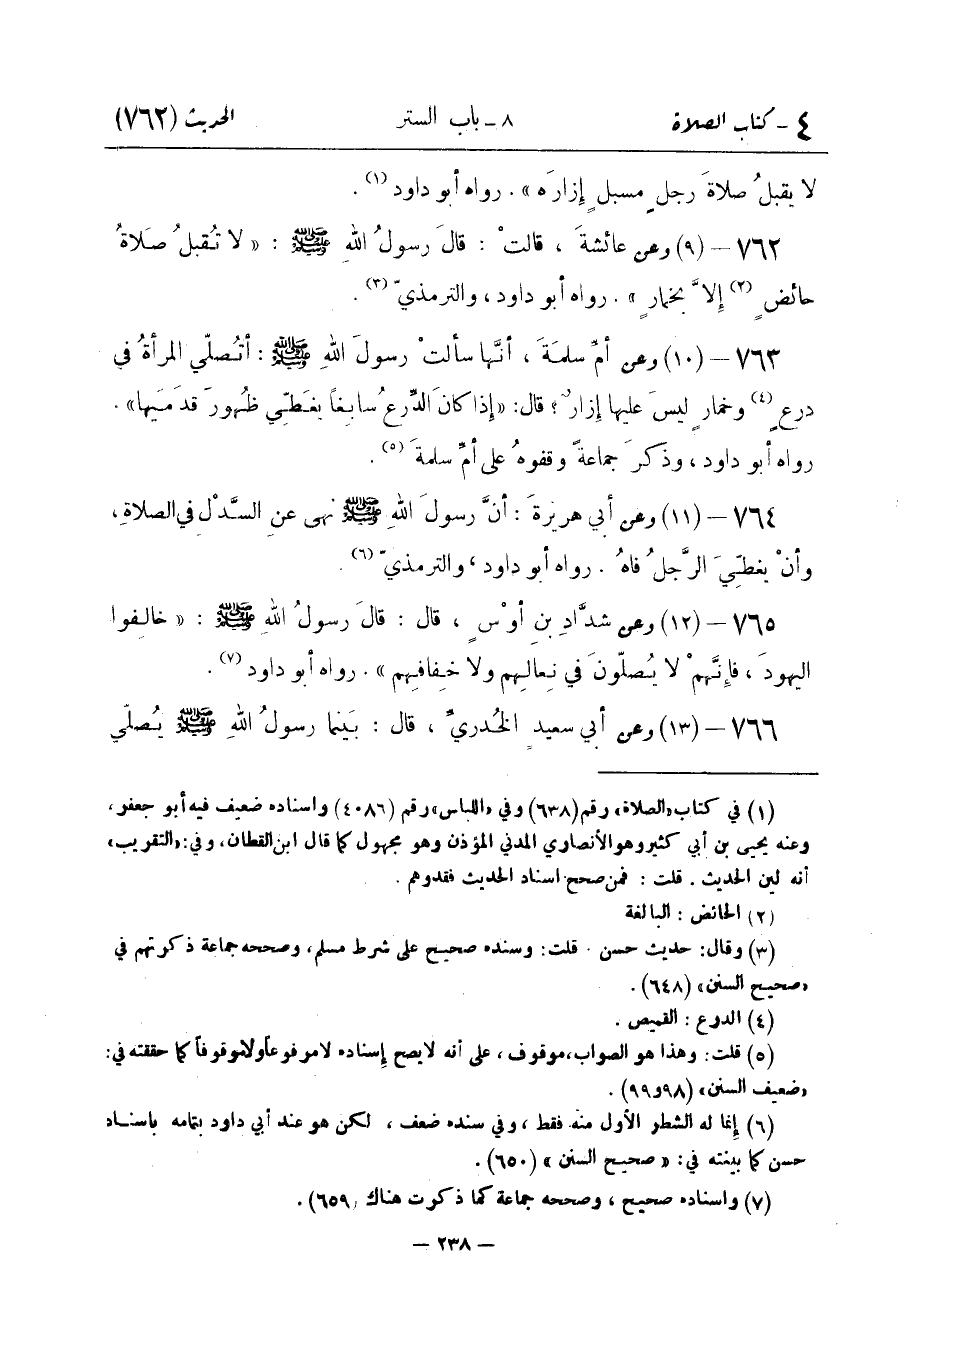 ٤ - كتاب الصلاة ٨ - باب الستر الحديث (٧٦٢)
لا يقبلُ صلاةَ رجلٍ مسبلٍ إزارَه » . رواه أبو داود (١) .
٧٦٢ – (٩) وعن عائشةَ ، قالتْ : قالَ رسولُ اللهِ ﷺ : « لا تُقبلُ صَلاةُ
حائضٍ (٢) إلاَّ بخمارٍ » . رواه أبو داود ، والترمذيّ (٣) .
٧٦٣ – (١٠) وعن أمِّ سلمةَ ، أنَّها سألتْ رسولَ اللهِ ﷺ : أتُصلّي المرأةُ في
درعٍ (٤) وخمارٍ ليسَ عليها إزارٌ ؟ قال : « إذا كانَ الدِّرعُ سابغاً يغَطّي ظُهورَ قدمَيها » .
رواه أبو داود ، وذكرَ جماعةً وقفوهُ على أمِّ سلمةَ (٥) .
٧٦٤ – (١١) وعن أبي هريرةَ : أنَّ رسولَ اللهِ ﷺ نهى عنِ السَّدْلِ في الصلاةِ ،
وأنْ يغطّيَ الرَّجلُ فاهُ . رواه أبو داود ، والترمذيّ (٦) .
٧٦٥ – (١٢) وعن شدَّادِ بنِ أوْسٍ ، قال : قالَ رسولُ اللهِ ﷺ : « خالِفوا
اليهودَ ، فإنَّهمْ لا يُصلّونَ في نِعالِهم ولا خِفافِهم » . رواه أبو داود (٧) .
٧٦٦ – (١٣) وعن أبي سعيدٍ الخُدريِّ ، قال : بَينما رسولُ اللهِ ﷺ يُصلّي
(١) في كتاب «الصلاة» رقم (٦٣٨) وفي «اللباس» رقم (٤٠٨٦) واسناده ضعيف فيه أبو جعفر ،
وعنه يحيى بن أبي كثير وهو الأنصاري المدني المؤذن وهو مجهول كما قال ابن القطان ، وفي : «التقريب»
أنه لين الحديث . قلت : فمن صحح اسناد الحديث فقدوهم .
(٢) الحائض : البالغة
(٣) وقال : حديث حسن . قلت : وسنده صحيح على شرط مسلم ، وصححه جماعة ذكرتهم في
«صحيح السنن» (٦٤٨) .
(٤) الدرع : القميص .
(٥) قلت : وهذا هو الصواب ، موقوف ، على أنه لا يصح إسناده لا مرفوعاً ولا موقوفاً كما حققته في :
«ضعيف السنن» (٩٨و٩٩) .
(٦) إنما له الشطر الأول منه فقط ، وفي سنده ضعف ، لكن هو عند أبي داود بتمامه باسناد
حسن كما بينته في : « صحيح السنن » (٦٥٠) .
(٧) واسناده صحيح ، وصححه جماعة كما ذكرت هناك (٦٥٩) .
— ٢٣٨ —